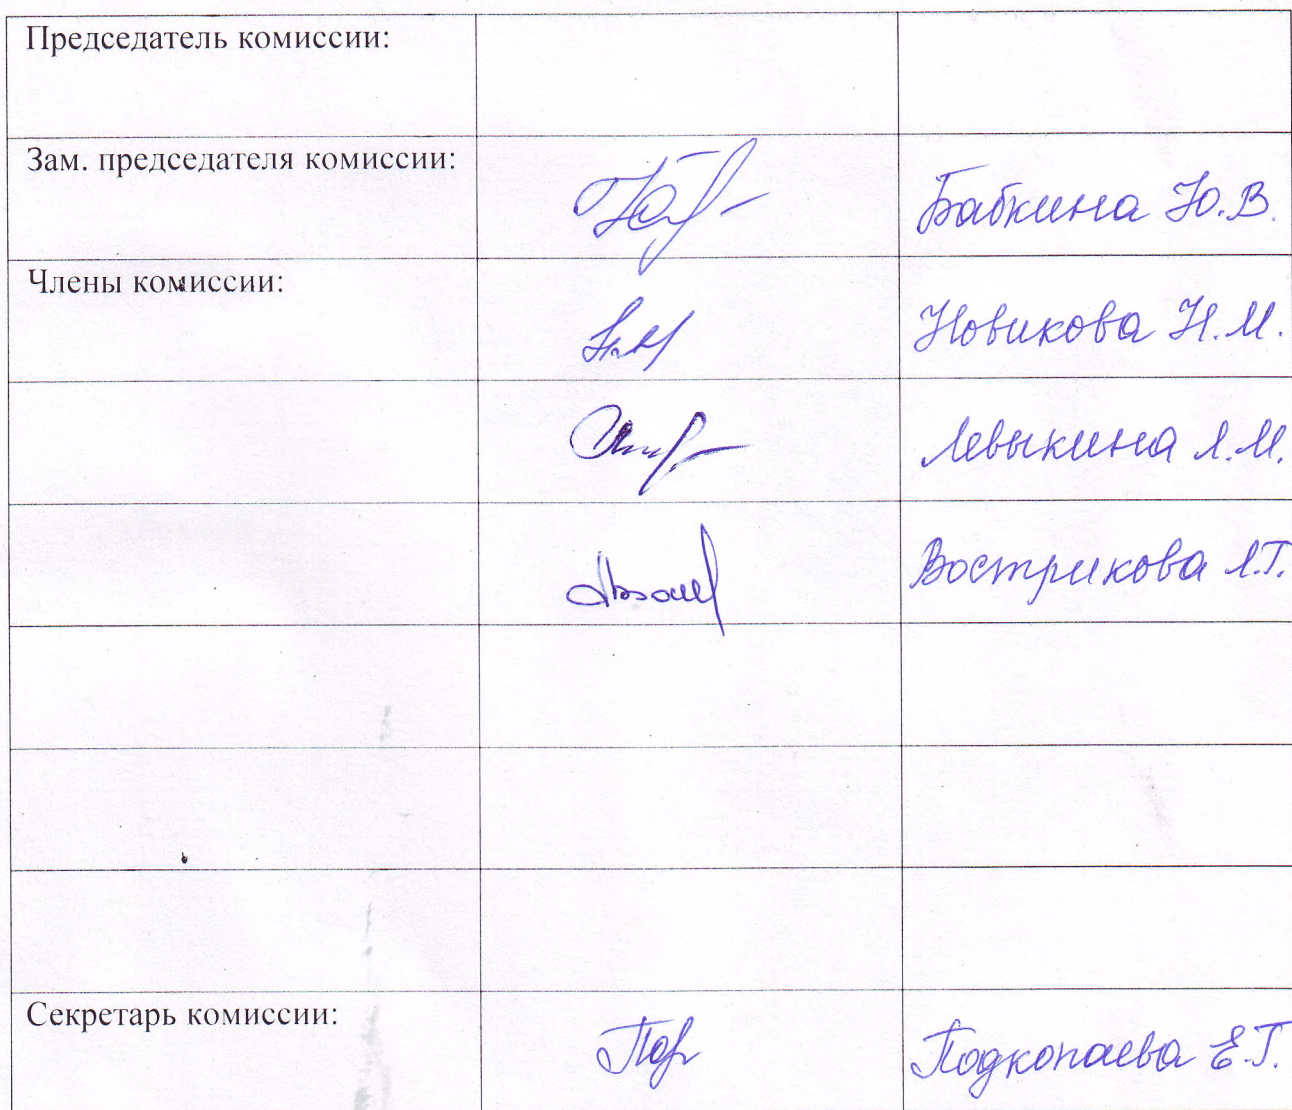 Председатель комиссии:
Зам. председателя комиссии:
Бабкина Ю.В.
Члены комиссии:
Новикова Н.М.
Левыкина Л.М.
Вострикова Л.Г.
Секретарь комиссии:
Подкопаева Е.Г.